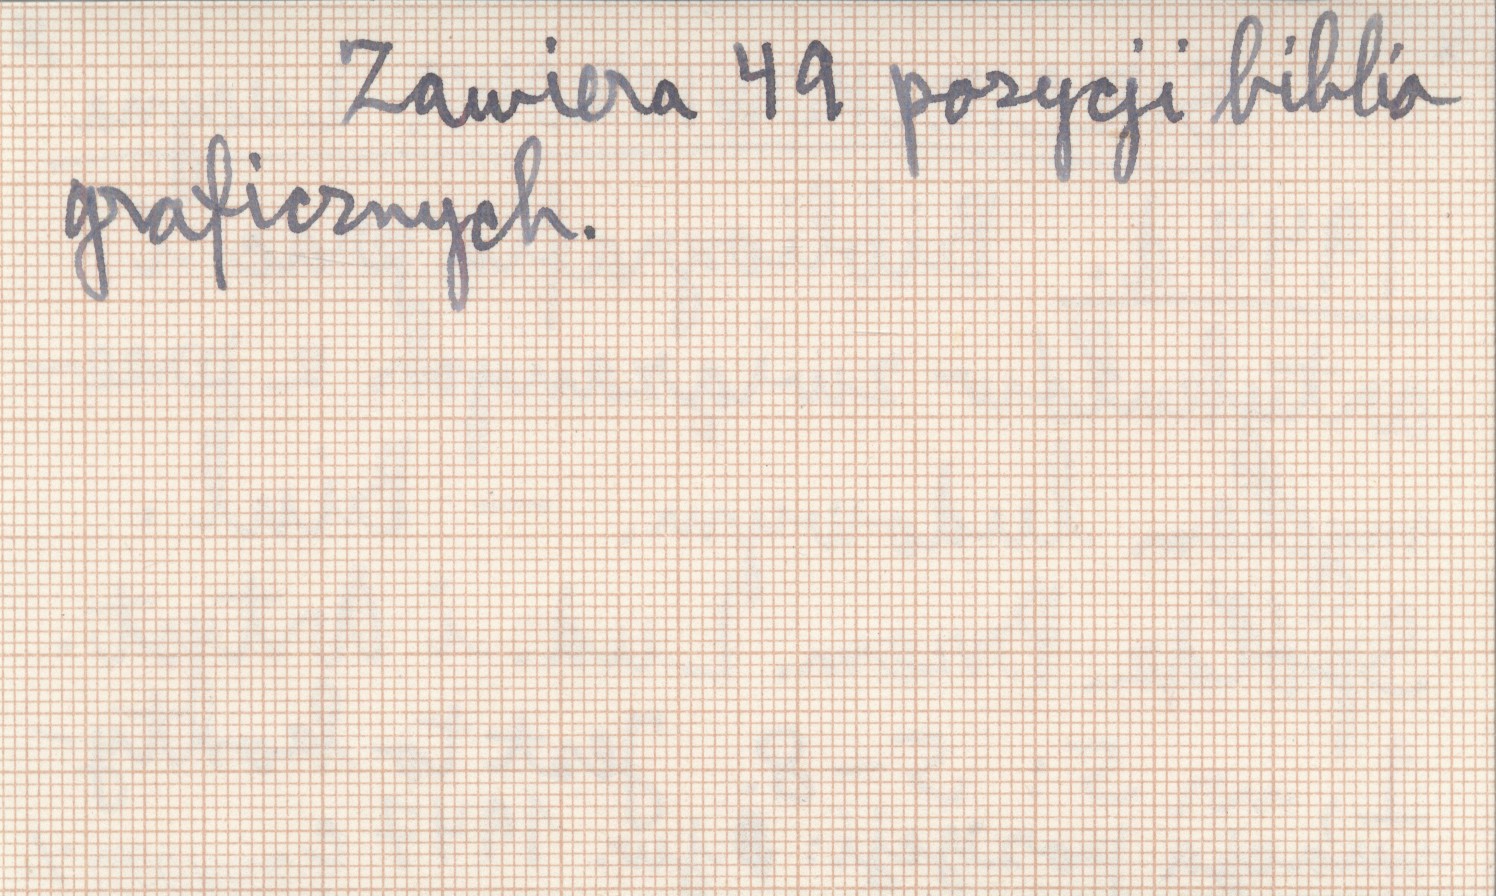 Zawiera 49 pozycji biblio
graficznych.